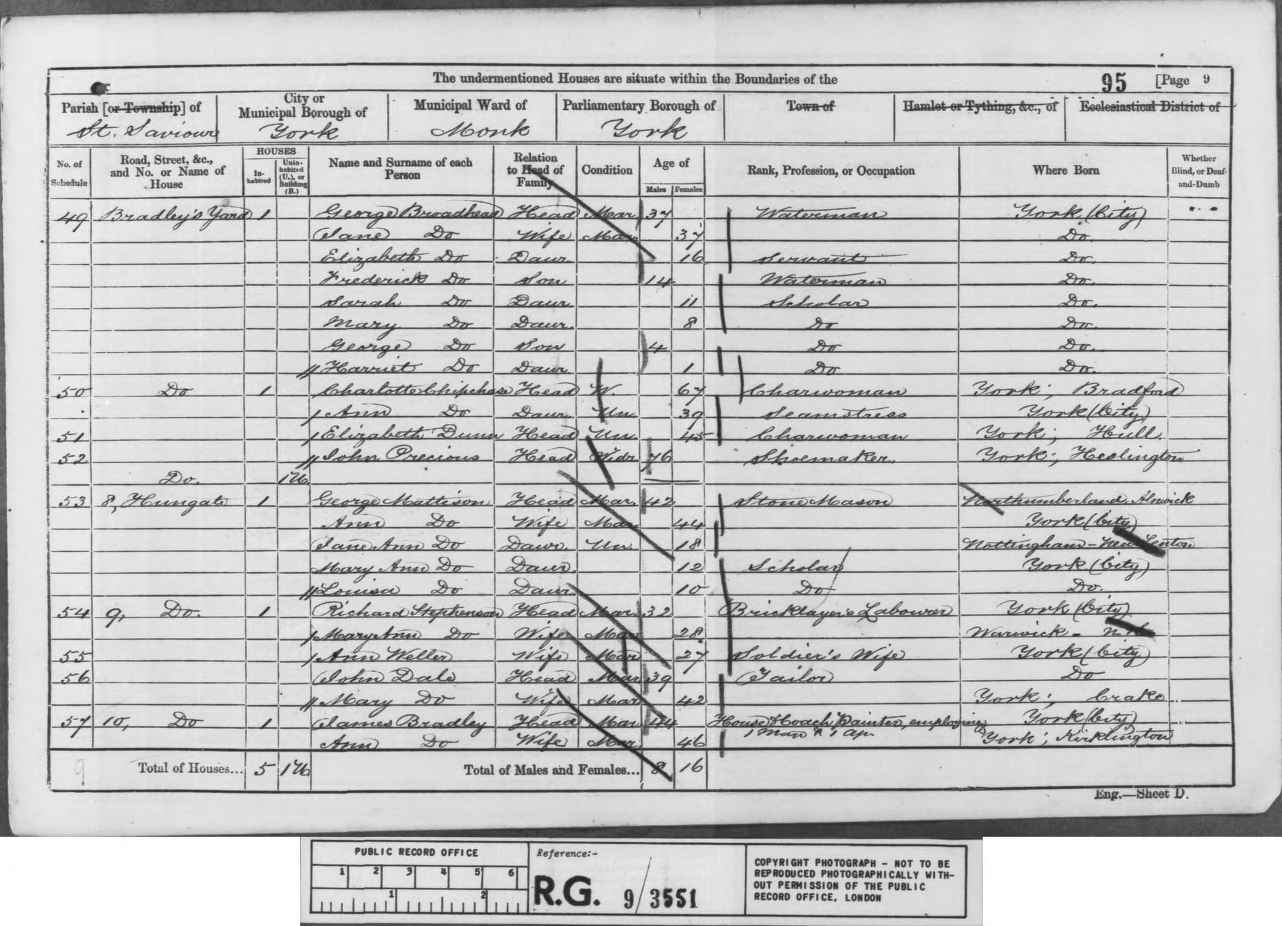 The undermentioned Houses are situate within the Boundaries of the 95 [Page 9
Parish [or Township] of City or Municipal Borough of Municipal Ward of Parliamentary Borough of Town of Hamlet or Tything, &c., of Ecclesiastical District of
St. Saviour York Monk York
No. of Schedule Road, Street, &c., and No. or Name of House HOUSES Inhabited Uninhabited (U.), or Building (B.) Name and Surname of each Person Relation to Head of Family Condition Age of Males Females Rank, Profession, or Occupation Where Born Whether Blind, or Deaf-and-Dumb
49 Bradley's Yard 1 George Broadhead Head Mar 37 Waterman York (City)
Jane Do Wife Mar 37 Do.
Elizabeth Do Daur 16 Servant Do.
Frederick Do Son 14 Waterman Do.
Sarah Do Daur 11 Scholar Do.
Mary Do Daur. 8 Do Do.
George Do Son 4 Do Do.
Harriet Do Daur 1 Do Do.
50 Do 1 Charlotte Chipchase Head W. 67 Charwoman York; Bradford
Ann Do Daur Un 39 Seamstress York (City)
51 Elizabeth Dunn Head Un 45 Charwoman York; Hull
52 John Precious Head Widr 76 Shoemaker York; Heslington
Do. 1 U
53 8, Hungate 1 George Mattison Head Mar 42 Stone Mason Northumberland Alnwick
Ann Do Wife Mar 44 York (City)
Jane Ann Do Daur. Un 18 Nottingham - Lenton
Mary Ann Do Daur. 12 Scholar York (City)
Louisa Do Daur 10 Do Do.
54 9, Do. 1 Richard Stephenson Head Mar 32 Bricklayer's Labourer York (City)
Mary Ann Do Wife Mar 28 Warwick - N.K.
55 Ann Weller Wife Mar 27 Soldier's Wife York (City)
56 John Dale Head Mar 39 Tailor Do
Mary Do Wife Mar 42 York; Crake
57 10, Do 1 James Bradley Head Mar 44 House & Coach Painter, employing York (City)
Ann Do Wife Mar 46 1 Man & 1 Ap. York; Kirklington
9 Total of Houses... 5 1 U Total of Males and Females... 8 16
Eng.—Sheet D.
PUBLIC RECORD OFFICE
1 2 3 4 5 6
1 2
Reference:-
R.G. 9/3551
COPYRIGHT PHOTOGRAPH - NOT TO BE
REPRODUCED PHOTOGRAPHICALLY WITH-
OUT PERMISSION OF THE PUBLIC
RECORD OFFICE, LONDON